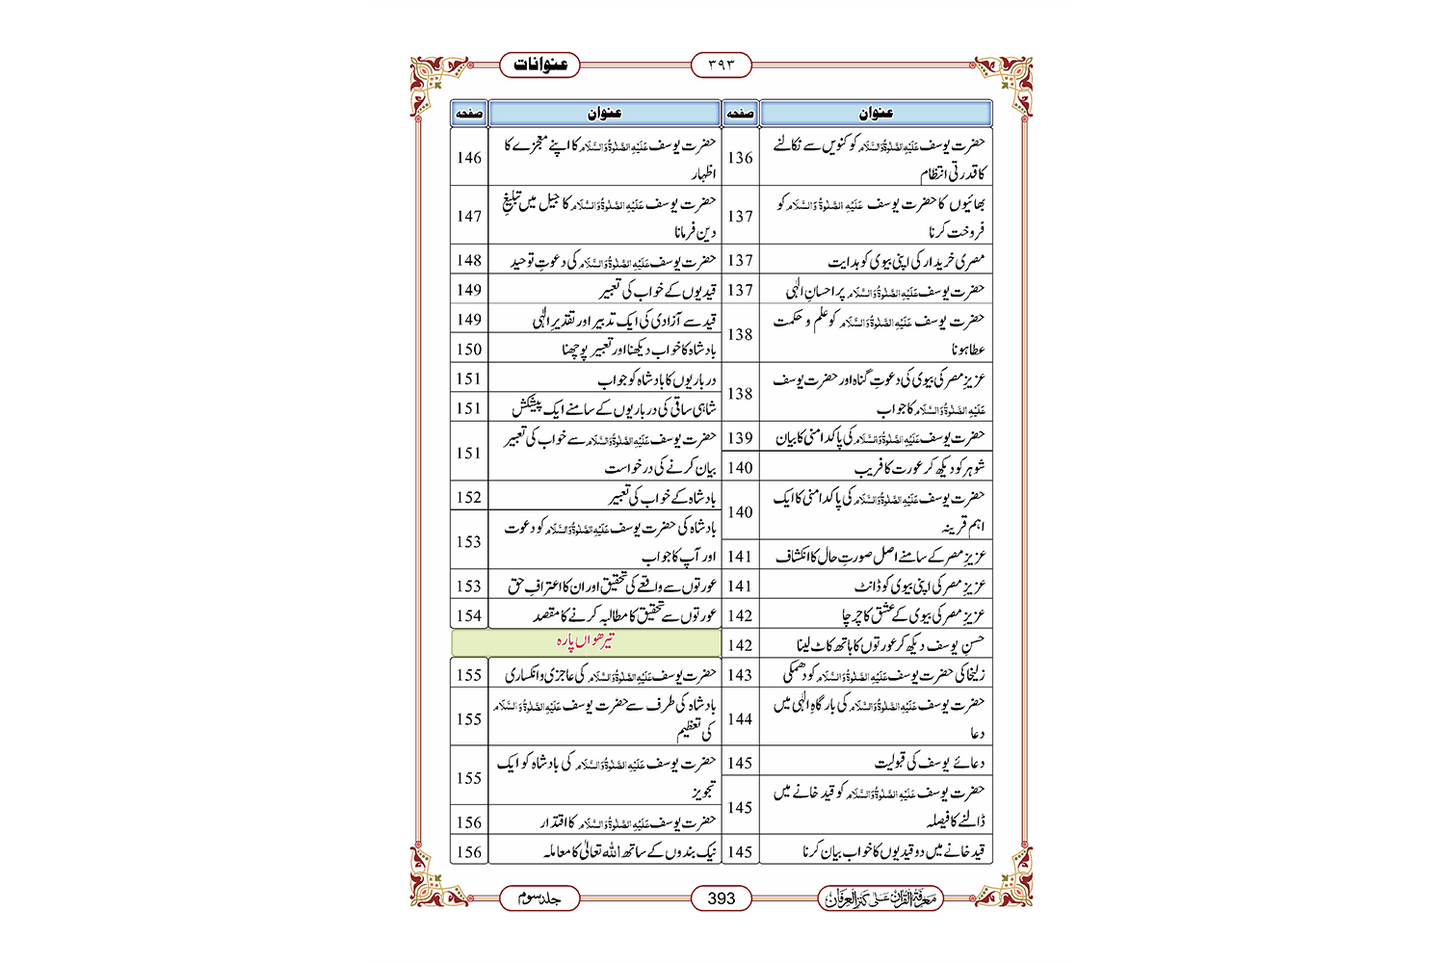 عنوانات
۳۹۳
عنوان صفحہ
حضرت یوسف عَلَیْہِ الصَّلٰوۃُ وَالسَّلَام کو کنویں سے نکالنے
کا قدرتی انتظام 136
بھائیوں کا حضرت یوسف عَلَیْہِ الصَّلٰوۃُ وَالسَّلَام کو
فروخت کرنا 137
مصری خریدار کی اپنی بیوی کو ہدایت 137
حضرت یوسف عَلَیْہِ الصَّلٰوۃُ وَالسَّلَام پر احسانِ الٰہی 137
حضرت یوسف عَلَیْہِ الصَّلٰوۃُ وَالسَّلَام کو علم و حکمت
عطا ہونا 138
عزیزِ مصر کی بیوی کی دعوتِ گناہ اور حضرت یوسف
عَلَیْہِ الصَّلٰوۃُ وَالسَّلَام کا جواب 138
حضرت یوسف عَلَیْہِ الصَّلٰوۃُ وَالسَّلَام کی پاکدامنی کا بیان 139
شوہر کو دیکھ کر عورت کا فریب 140
حضرت یوسف عَلَیْہِ الصَّلٰوۃُ وَالسَّلَام کی پاکدامنی کا ایک
اہم قرینہ 140
عزیزِ مصر کے سامنے اصل صورتِ حال کا انکشاف 141
عزیزِ مصر کی اپنی بیوی کو ڈانٹ 141
عزیزِ مصر کی بیوی کے عشق کا چرچا 142
حسنِ یوسف دیکھ کر عورتوں کا ہاتھ کاٹ لینا 142
زلیخا کی حضرت یوسف عَلَیْہِ الصَّلٰوۃُ وَالسَّلَام کو دھمکی 143
حضرت یوسف عَلَیْہِ الصَّلٰوۃُ وَالسَّلَام کی بارگاہِ الٰہی میں
دعا 144
دعائے یوسف کی قبولیت 145
حضرت یوسف عَلَیْہِ الصَّلٰوۃُ وَالسَّلَام کو قید خانے میں
ڈالنے کا فیصلہ 145
قید خانے میں دو قیدیوں کا خواب بیان کرنا 145
عنوان صفحہ
حضرت یوسف عَلَیْہِ الصَّلٰوۃُ وَالسَّلَام کا اپنے معجزے کا
اظہار 146
حضرت یوسف عَلَیْہِ الصَّلٰوۃُ وَالسَّلَام کا جیل میں تبلیغِ
دین فرمانا 147
حضرت یوسف عَلَیْہِ الصَّلٰوۃُ وَالسَّلَام کی دعوتِ توحید 148
قیدیوں کے خواب کی تعبیر 149
قید سے آزادی کی ایک تدبیر اور تقدیرِ الٰہی 149
بادشاہ کا خواب دیکھنا اور تعبیر پوچھنا 150
درباریوں کا بادشاہ کو جواب 151
شاہی ساقی کی درباریوں کے سامنے ایک پیشکش 151
حضرت یوسف عَلَیْہِ الصَّلٰوۃُ وَالسَّلَام سے خواب کی تعبیر
بیان کرنے کی درخواست 151
بادشاہ کے خواب کی تعبیر 152
بادشاہ کی حضرت یوسف عَلَیْہِ الصَّلٰوۃُ وَالسَّلَام کو دعوت
اور آپ کا جواب 153
عورتوں سے واقعے کی تحقیق اور ان کا اعترافِ حق 153
عورتوں سے تحقیق کا مطالبہ کرنے کا مقصد 154
تیرھواں پارہ
حضرت یوسف عَلَیْہِ الصَّلٰوۃُ وَالسَّلَام کی عاجزی و انکساری 155
بادشاہ کی طرف سے حضرت یوسف عَلَیْہِ الصَّلٰوۃُ وَالسَّلَام
کی تعظیم 155
حضرت یوسف عَلَیْہِ الصَّلٰوۃُ وَالسَّلَام کی بادشاہ کو ایک
تجویز 155
حضرت یوسف عَلَیْہِ الصَّلٰوۃُ وَالسَّلَام کا اقتدار 156
نیک بندوں کے ساتھ اللہ تعالیٰ کا معاملہ 156
معرفۃ القرآن علٰی کنز العرفان
393
جلد سوم